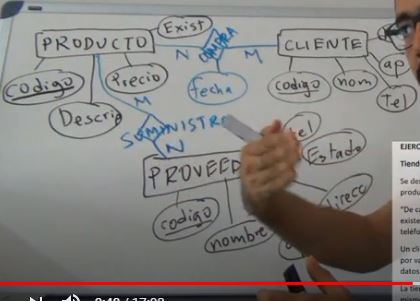 Exist
PRODUCTO
N
COMPRA
M
CLIENTE
codigo
Precio
fecha
codigo
nom
ap
Tel
Descrip
M
SUMINISTRO
N
tel
Estado
PROVEED
codigo
nombre
direcc
EJERC
Tiend
Se des
produ
"De ca
existe
teléfo
Un cli
por va
datos
La tien